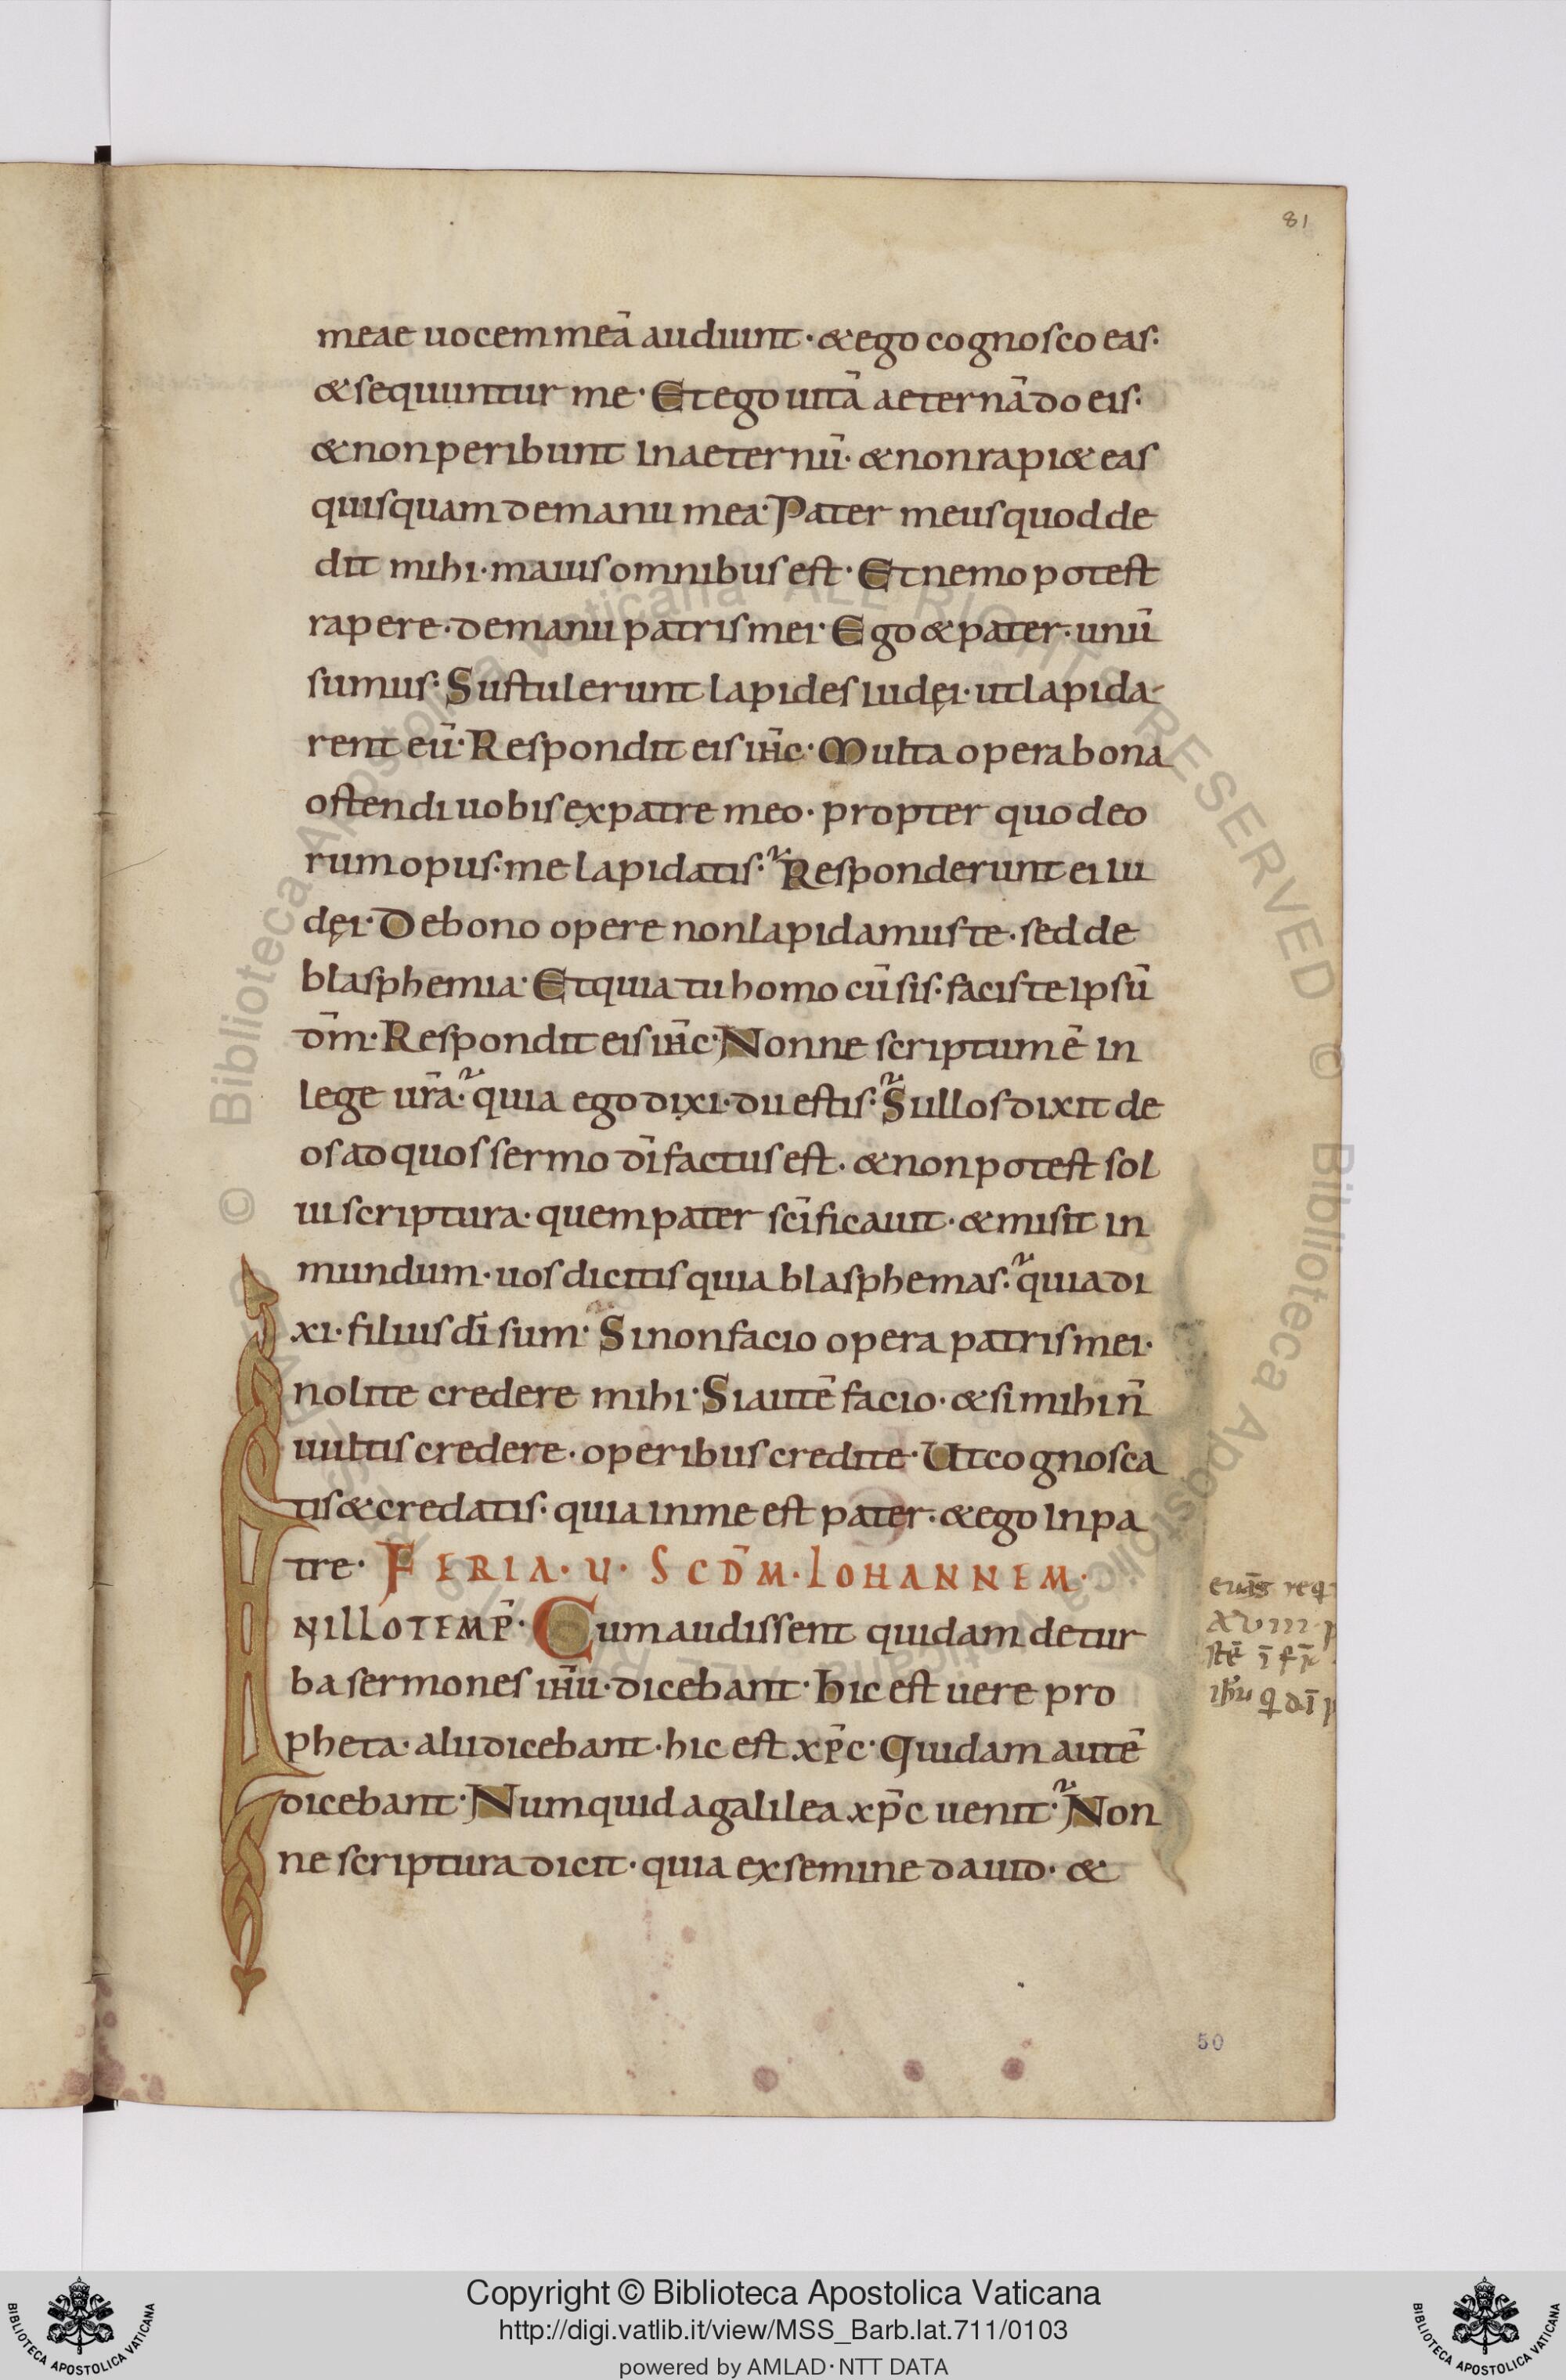 81
meae uocem meā audiunt · & ego cognosco eas ·
& sequuntur me · Et ego uitā aeternā do eis ·
& non peribunt in aeternū · & non rapi& eas
quisquam de manu mea · Pater meus quod de
dit mihi · maius omnibus est · Et nemo potest
rapere · de manu patris mei · Ego & pater · unū
sumus : Sustulerunt lapides iudęi · ut lapida
rent eū · Respondit eis ih̄c · Multa opera bona
ostendi uobis ex patre meo · propter quod eo
rum opus · me lapidatis : Responderunt ei iu
dęi · De bono opere non lapidamus te · sed de
blasphemia · Et quia tu homo cū sis : facis te ipsū
dm̄ · Respondit eis ih̄c · Nonne scriptum ē in
lege ur̄a · quia ego dixi · dii estis : Si illos dixit de
os ad quos sermo dī factus est · & non potest sol
ui scriptura · quem pater scīficauit · & misit in
mundum · uos dicitis quia blasphemas : quia di
xi · filius dī sum · Si non facio opera patris mei ·
nolite credere mihi · Si autē facio · & si mihi n̄
uultis credere · operibus credite · Ut cognosca
tis & credatis · quia in me est pater · & ego in pa
tre · FERIA · U · SCDM̄ · IOHANNEM ·
IN ILLO TEMP̄ · Cum audissent quidam de tur
ba sermones ih̄u · dicebant · hic est uere pro
pheta · alii dicebant · hic est xp̄c · Quidam autē
dicebant · Numquid a galilea xp̄c uenit · Non
ne scriptura dicit · quia ex semine dauid · &
50
© Biblioteca Apostolica Vaticana ALL RIGHTS RESERVED
Copyright © Biblioteca Apostolica Vaticana
http://digi.vatlib.it/view/MSS_Barb.lat.711/0103
powered by AMLAD · NTT DATA
BIBLIOTECA APOSTOLICA VATICANA
BIBLIOTECA APOSTOLICA VATICANA